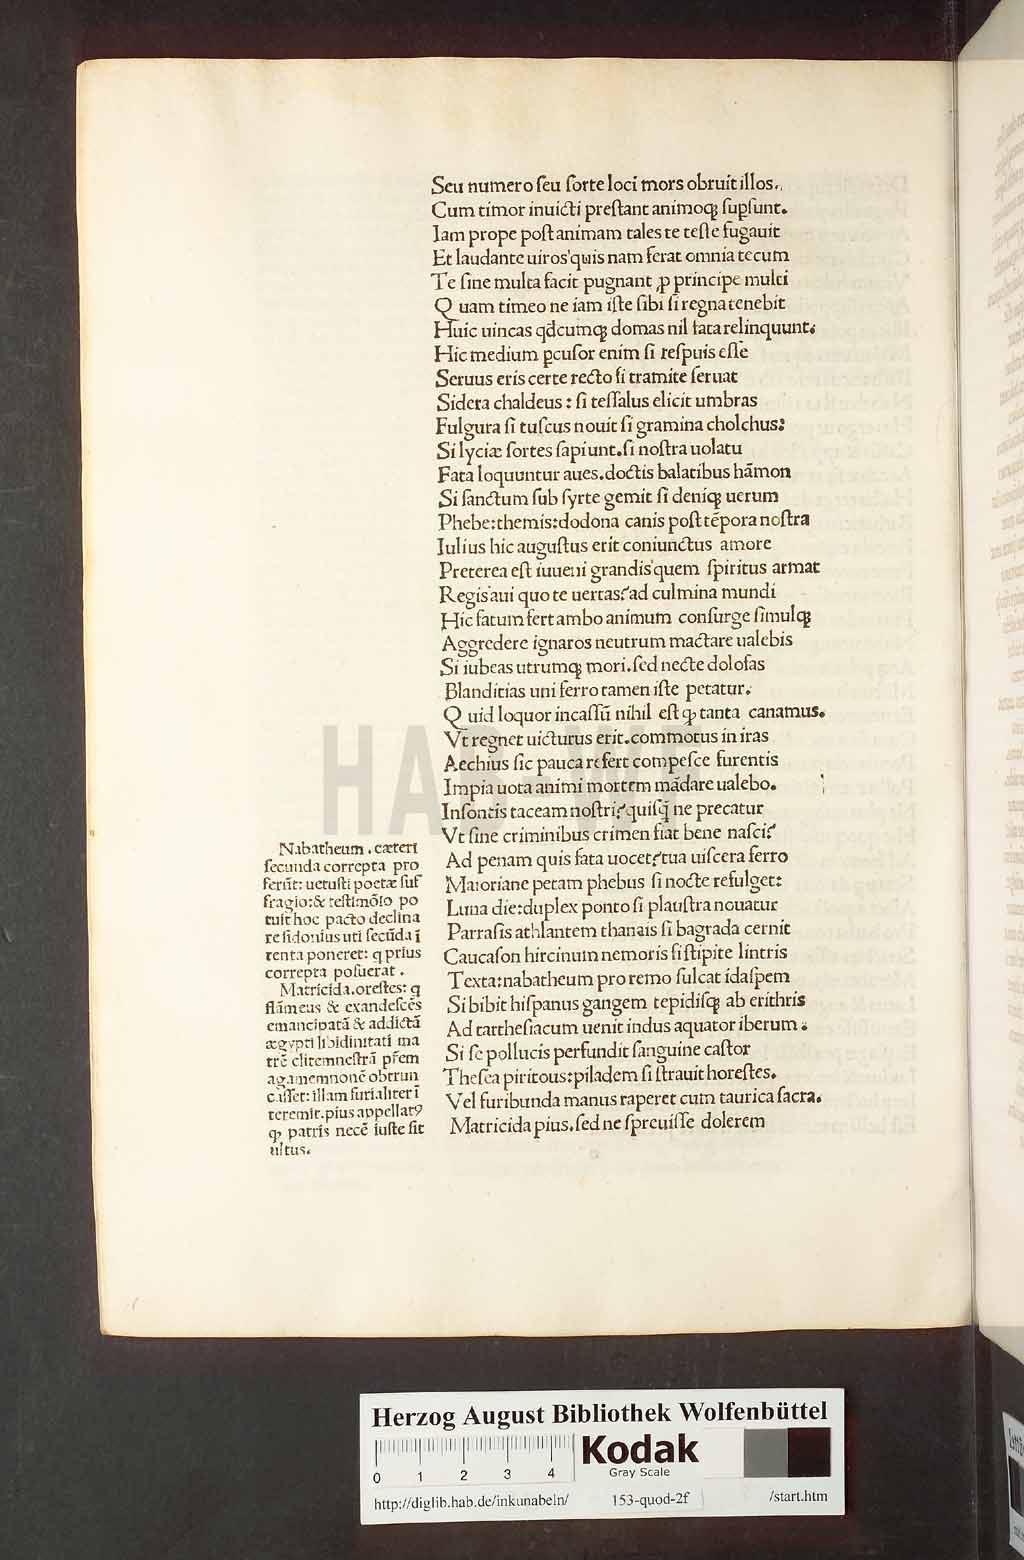 Seu numero ſeu ſorte loci mors obruit illos.
Cum timor inuicti preſtant animoqꝫ ſuꝑſunt.
Iam prope poſt animam tales te teſte fugauit
Et laudante uiros'quis nam ferat omnia tecum
Te ſine multa facit pugnant ꝓ principe multi
Quam timeo ne iam iſte ſibi ſi regna tenebit
Huic uincas qđcumqꝫ domas nil fata relinquunt.
Hic medium ꝑcuſor enim ſi reſpuis eſſe
Seruus eris certe recto ſi tramite ſeruat
Sidera chaldeus: ſi teſſalus elicit umbras
Fulgura ſi tuſcus nouit ſi gramina cholchus:
Si lyciæ ſortes ſapiunt.ſi noſtra uolatu
Fata loquuntur aues.doctis balatibus hāmon
Si ſanctum ſub ſyrte gemit ſi deniqꝫ uerum
Phebe:themis:dodona canis poſt tēpora noſtra
Iulius hic auguſtus erit coniunctus amore
Preterea eſt iuueni grandis'quem ſpiritus armat
Regis'aui quo te uertas?ad culmina mundi
Hic fatum fert ambo animum conſurge ſimulqꝫ
Aggredere ignaros neutrum mactare ualebis
Si iubeas utrumqꝫ mori.ſed necte doloſas
Blanditias uni ferro tamen iſte petatur.
Quid loquor incaſſū nihil eſt ꝙ tanta canamus.
Vt regnet uicturus erit.commotus in iras
Aechius ſic pauca refert compeſce furentis
Impia uota animi mortem mādare ualebo.
Inſontis taceam noſtri?quiſq̄ ne precatur
Vt ſine criminibus crimen fiat bene naſci?
Ad penam quis fata uocet?tua uiſcera ferro
Maioriane petam phebus ſi nocte refulget:
Luna die:duplex ponto ſi plauſtra nouatur
Parraſis athlantem thanais ſi bagrada cernit
Caucaſon hircinum nemoris ſi ſtipite lintris
Texta:nabatheum pro remo ſulcat idaſpem
Si bibit hiſpanus gangem tepidiſqꝫ ab erithris
Ad tartheſiacum uenit indus aquator iberum.
Si ſe pollucis perfundit ſanguine caſtor
Theſea piritous:piladem ſi ſtrauit horeſtes.
Vel furibunda manus raperet cum taurica ſacra.
Matricida pius.ſed ne ſpreuiſſe dolorem
Nabatheum.cæteri
ſecunda correpta pro
ferūt: uetuſti poetæ ſuf
fragio:& teſtimōio po
tuit hoc pacto declina
re ſidonius uti ſecūda ī
renta poneret: q prius
correpta poſuerat.
Matricida.oreſtes: q
flāmeus & exandeſcēs
emancipatā & addictā
ægypti libidinitati ma
trē clitemneſtrā pr̄em
agamemnonē obtrun
caſſet: illam furialiter ī
teremit.pius appellatꝰ
ꝙ patris necē iuſte ſit
ultus.
HAB-WF
Herzog August Bibliothek Wolfenbüttel
Kodak
Gray Scale
0 1 2 3 4
http://diglib.hab.de/inkunabeln/ 153-quod-2f /start.htm